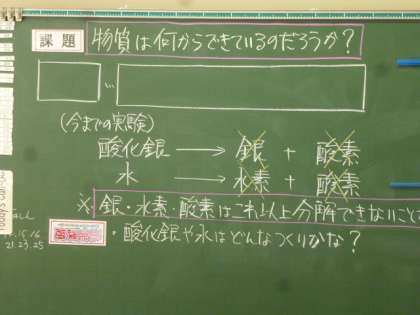 課題 物質は何からできているのだろうか?
…
(今までの実験)
酸化銀 → 銀 + 酸素
水 → 水素 + 酸素
※ 銀・水素・酸素はこれ以上分解できないこと
・酸化銀や水はどんなつくりかな?
21.23.25